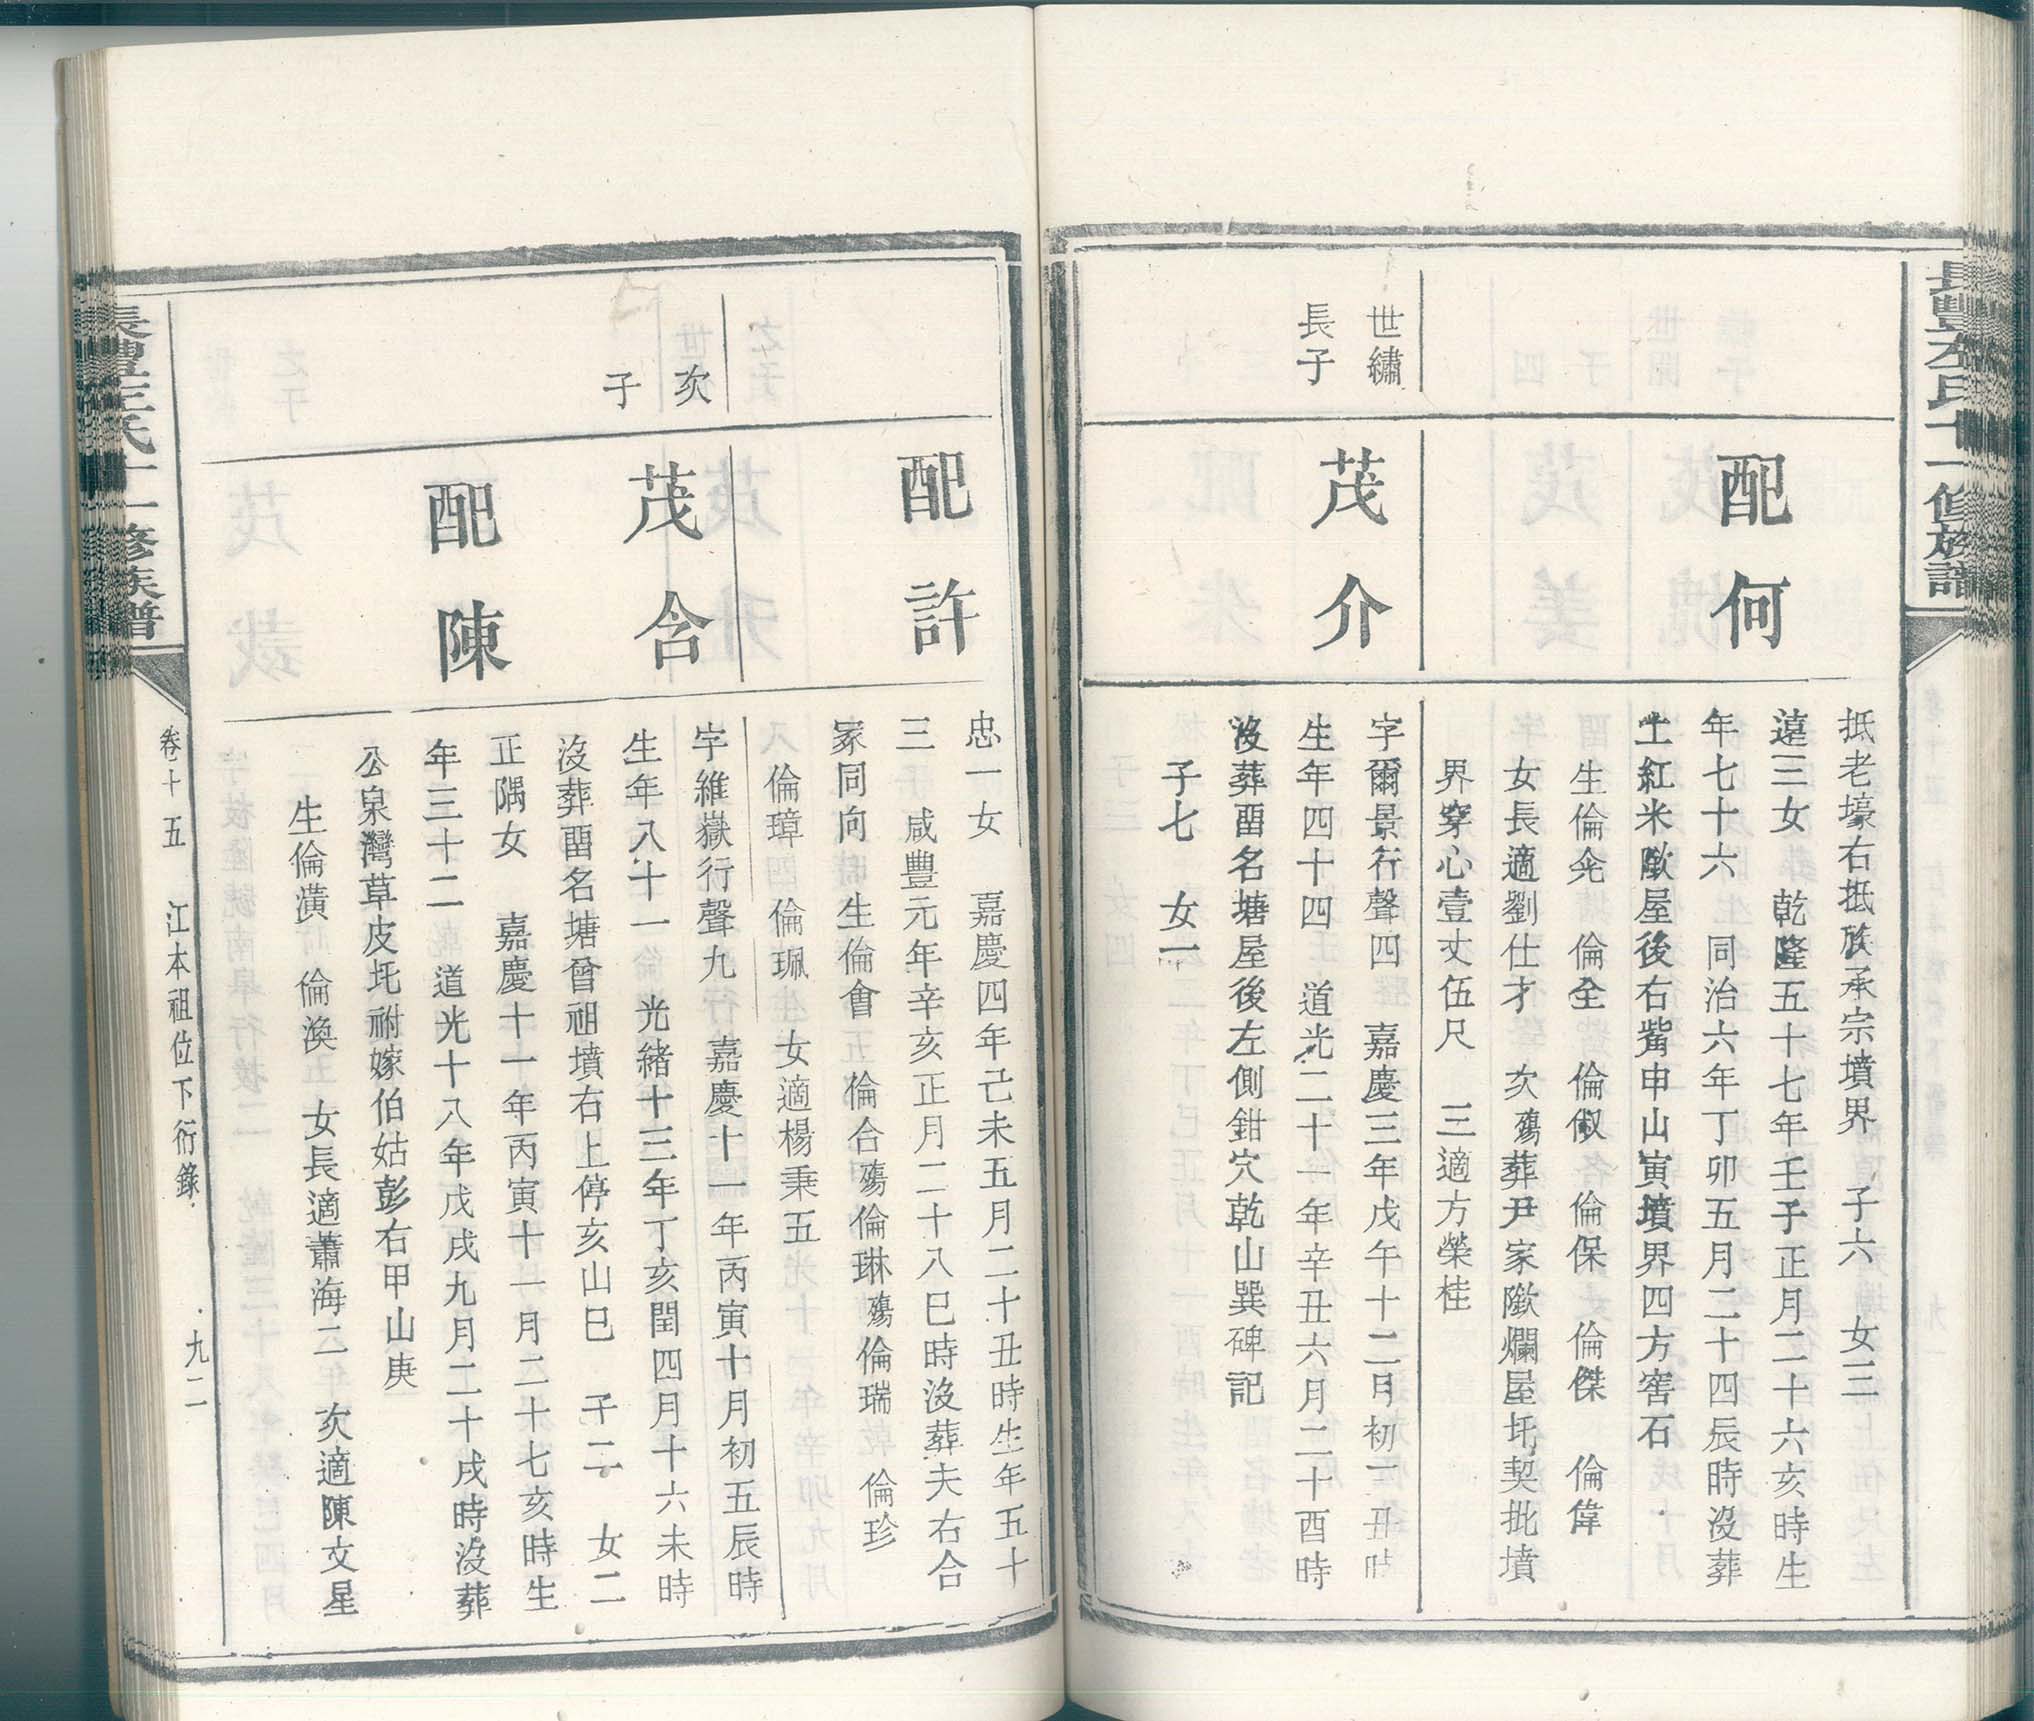 長豐左氏十一修族譜
配何
抵老壕右抵族承宗墳界 子六 女三
遠三女 乾隆五十七年壬子正月二十六亥時生
年七十六 同治六年丁卯五月二十四辰時没葬
土紅米歐屋後右觜申山寅墳界四方窖石
生倫光 倫全 倫俶 倫保 倫傑 倫偉
女長適劉仕才 次殤葬尹家爛屋圫契批墳
界穿心壹丈伍尺 三適方榮桂
世繡
長子
茂介
字爾景行聲四 嘉慶三年戊午十二月初一丑時
生年四十四 道光二十一年辛丑六月二十酉時
没葬畱名塘屋後左側鉗穴乾山巽碑記
子七 女一
配許
忠一女 嘉慶四年己未五月二十丑時生年五十
三 咸豐元年辛亥正月二十八巳時没葬夫右合
冢同向 生倫會 倫合殤倫琳殤倫瑞 倫珍
倫璋 倫珮 女適楊秉五
次
子
茂含
字維嶽行聲九 嘉慶十一年丙寅十月初五辰時
生年八十一 光緒十三年丁亥閏四月十六未時
没葬畱名塘曾祖墳右上停亥山巳 子二 女二
配陳
正隅女 嘉慶十一年丙寅十一月二十七亥時生
年三十二 道光十八年戊戌九月二十戌時没葬
公泉灣草皮圫祔嫁伯姑彭右甲山庚
生倫潢 倫渙 女長適蕭海二 次適陳文星
長豐左氏十一修族譜
卷十五 江本祖位下衍錄 九二